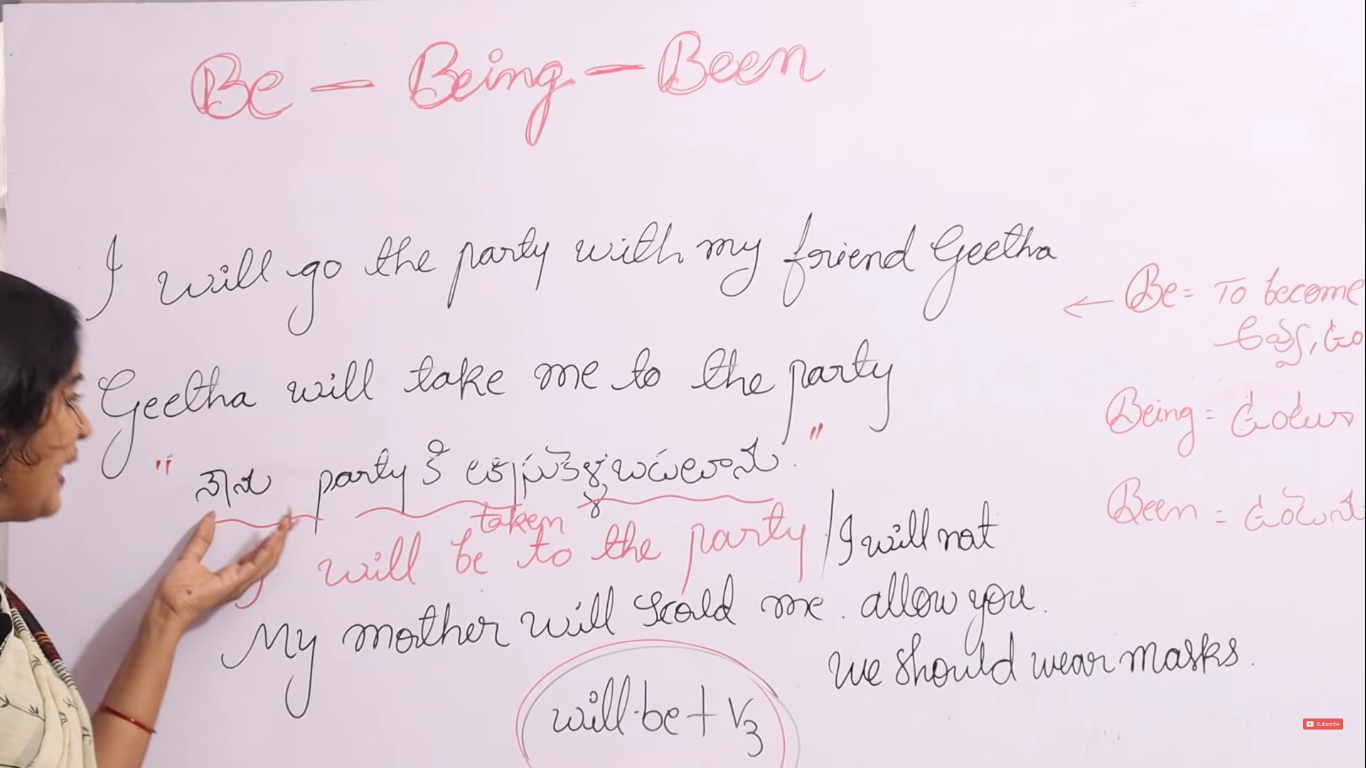 Be – Being – Been
I will go the party with my friend Geetha
Geetha will take me to the party
" ನಾನು party ಕೆ "
taken
I will be to the party / I will not
My mother will scold me. allow you.
we should wear masks.
will be + V3
← Be = To become
Being =
Been =
Subscribe